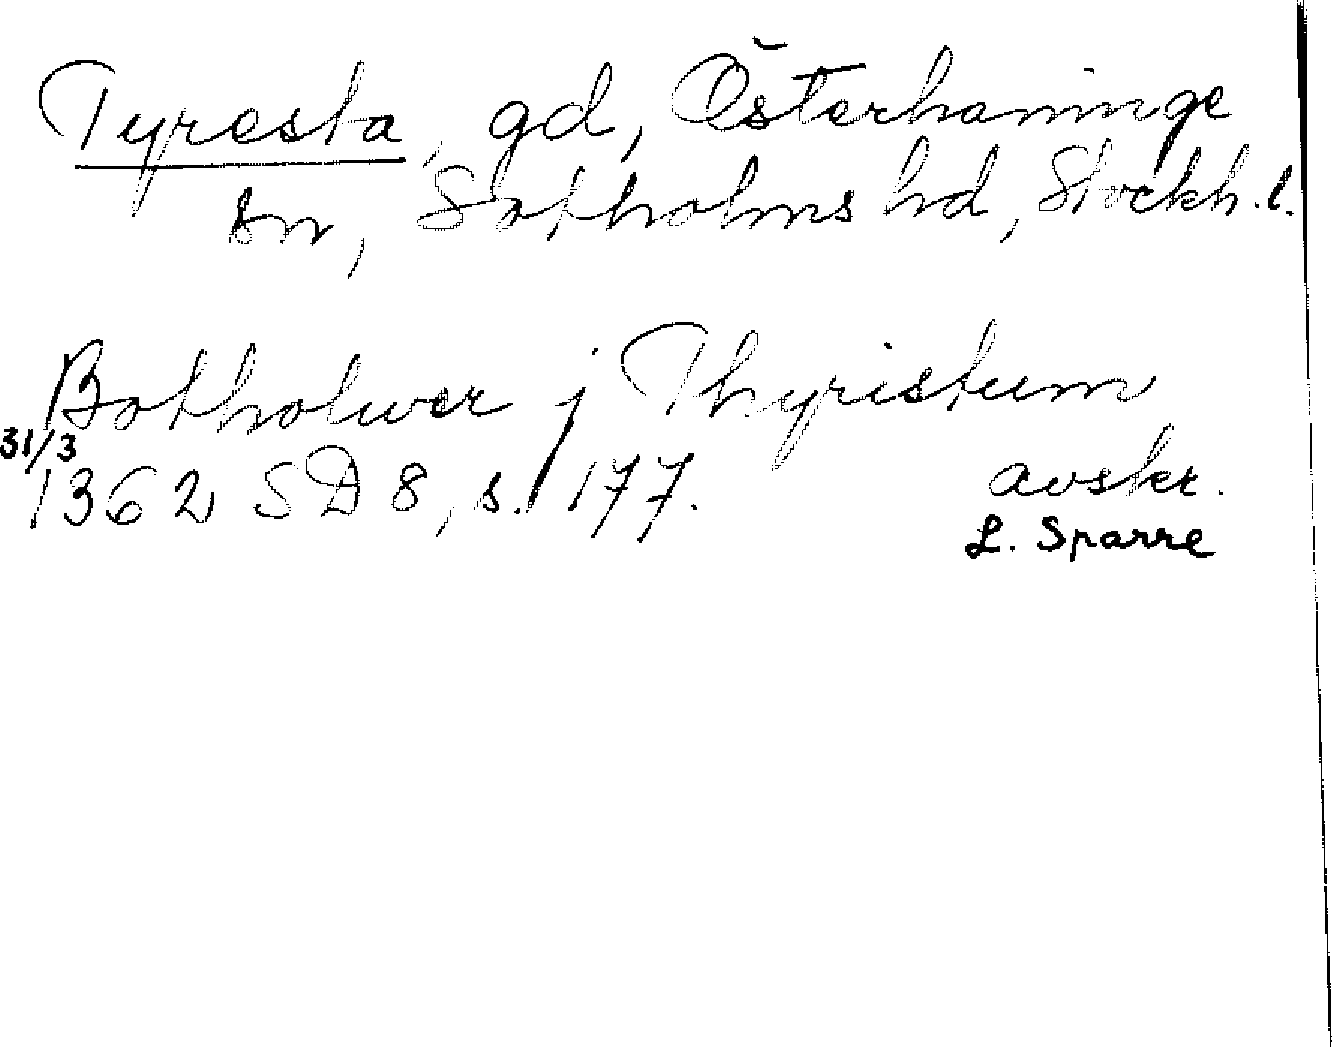 Tyresta, gd, Österhaninge
sn, Sotholms hd, Stockh. l.
Botholwer j Thyristum
31/3
1362 SD 8, s. 177.
avskr.
L. Sparre